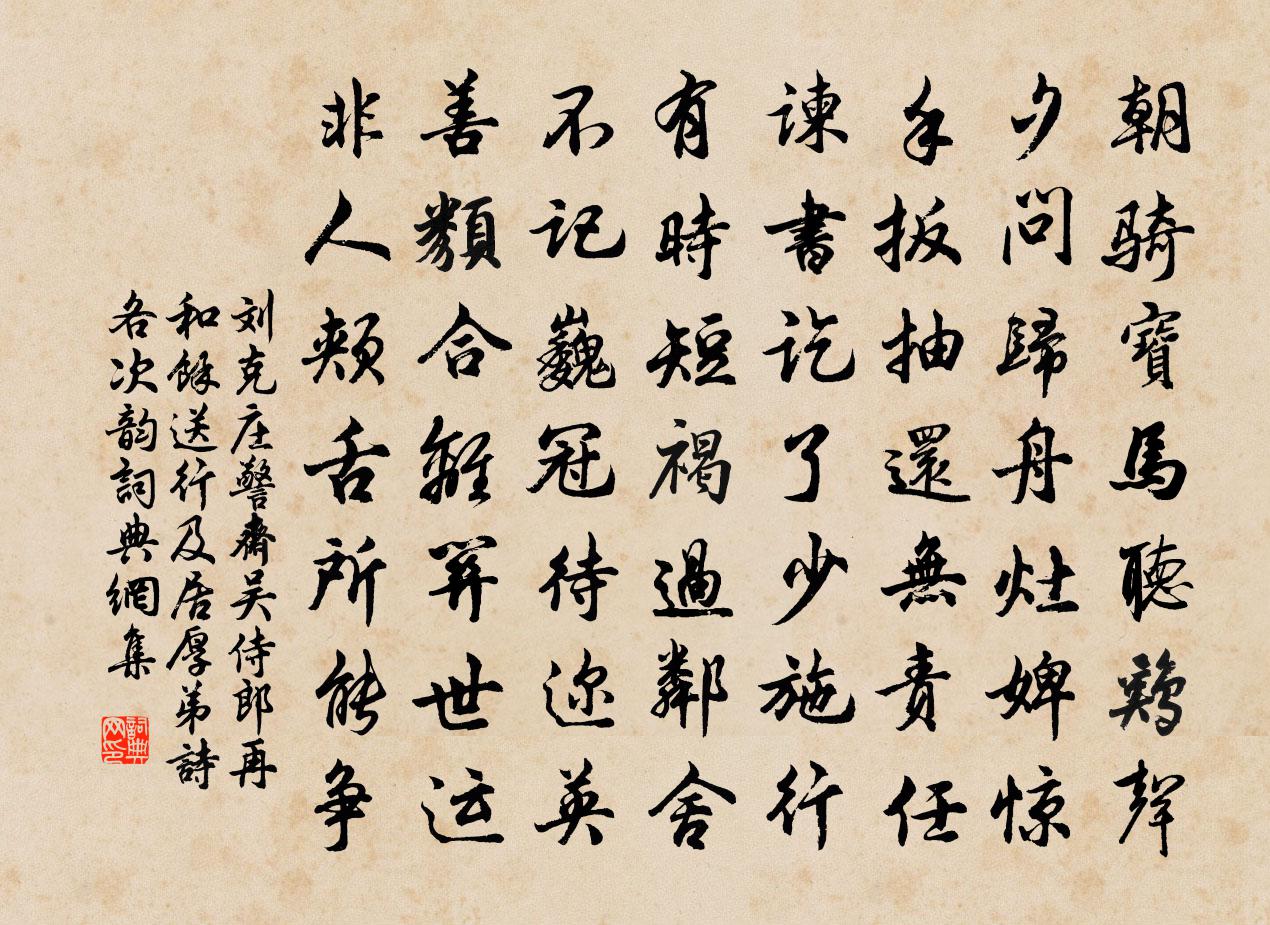 朝騎寶馬聽鷄聲
夕問歸舟灶婢惊
手扳抽還無責任
諫書訖了少施行
有時短褐過鄰舍
不記巍冠待迩英
善類合離關世运
非人頰舌所能争
刘克庄警齋吴侍郎再
和餘送行及居厚弟詩
各次韵詞典網集
詞典网印